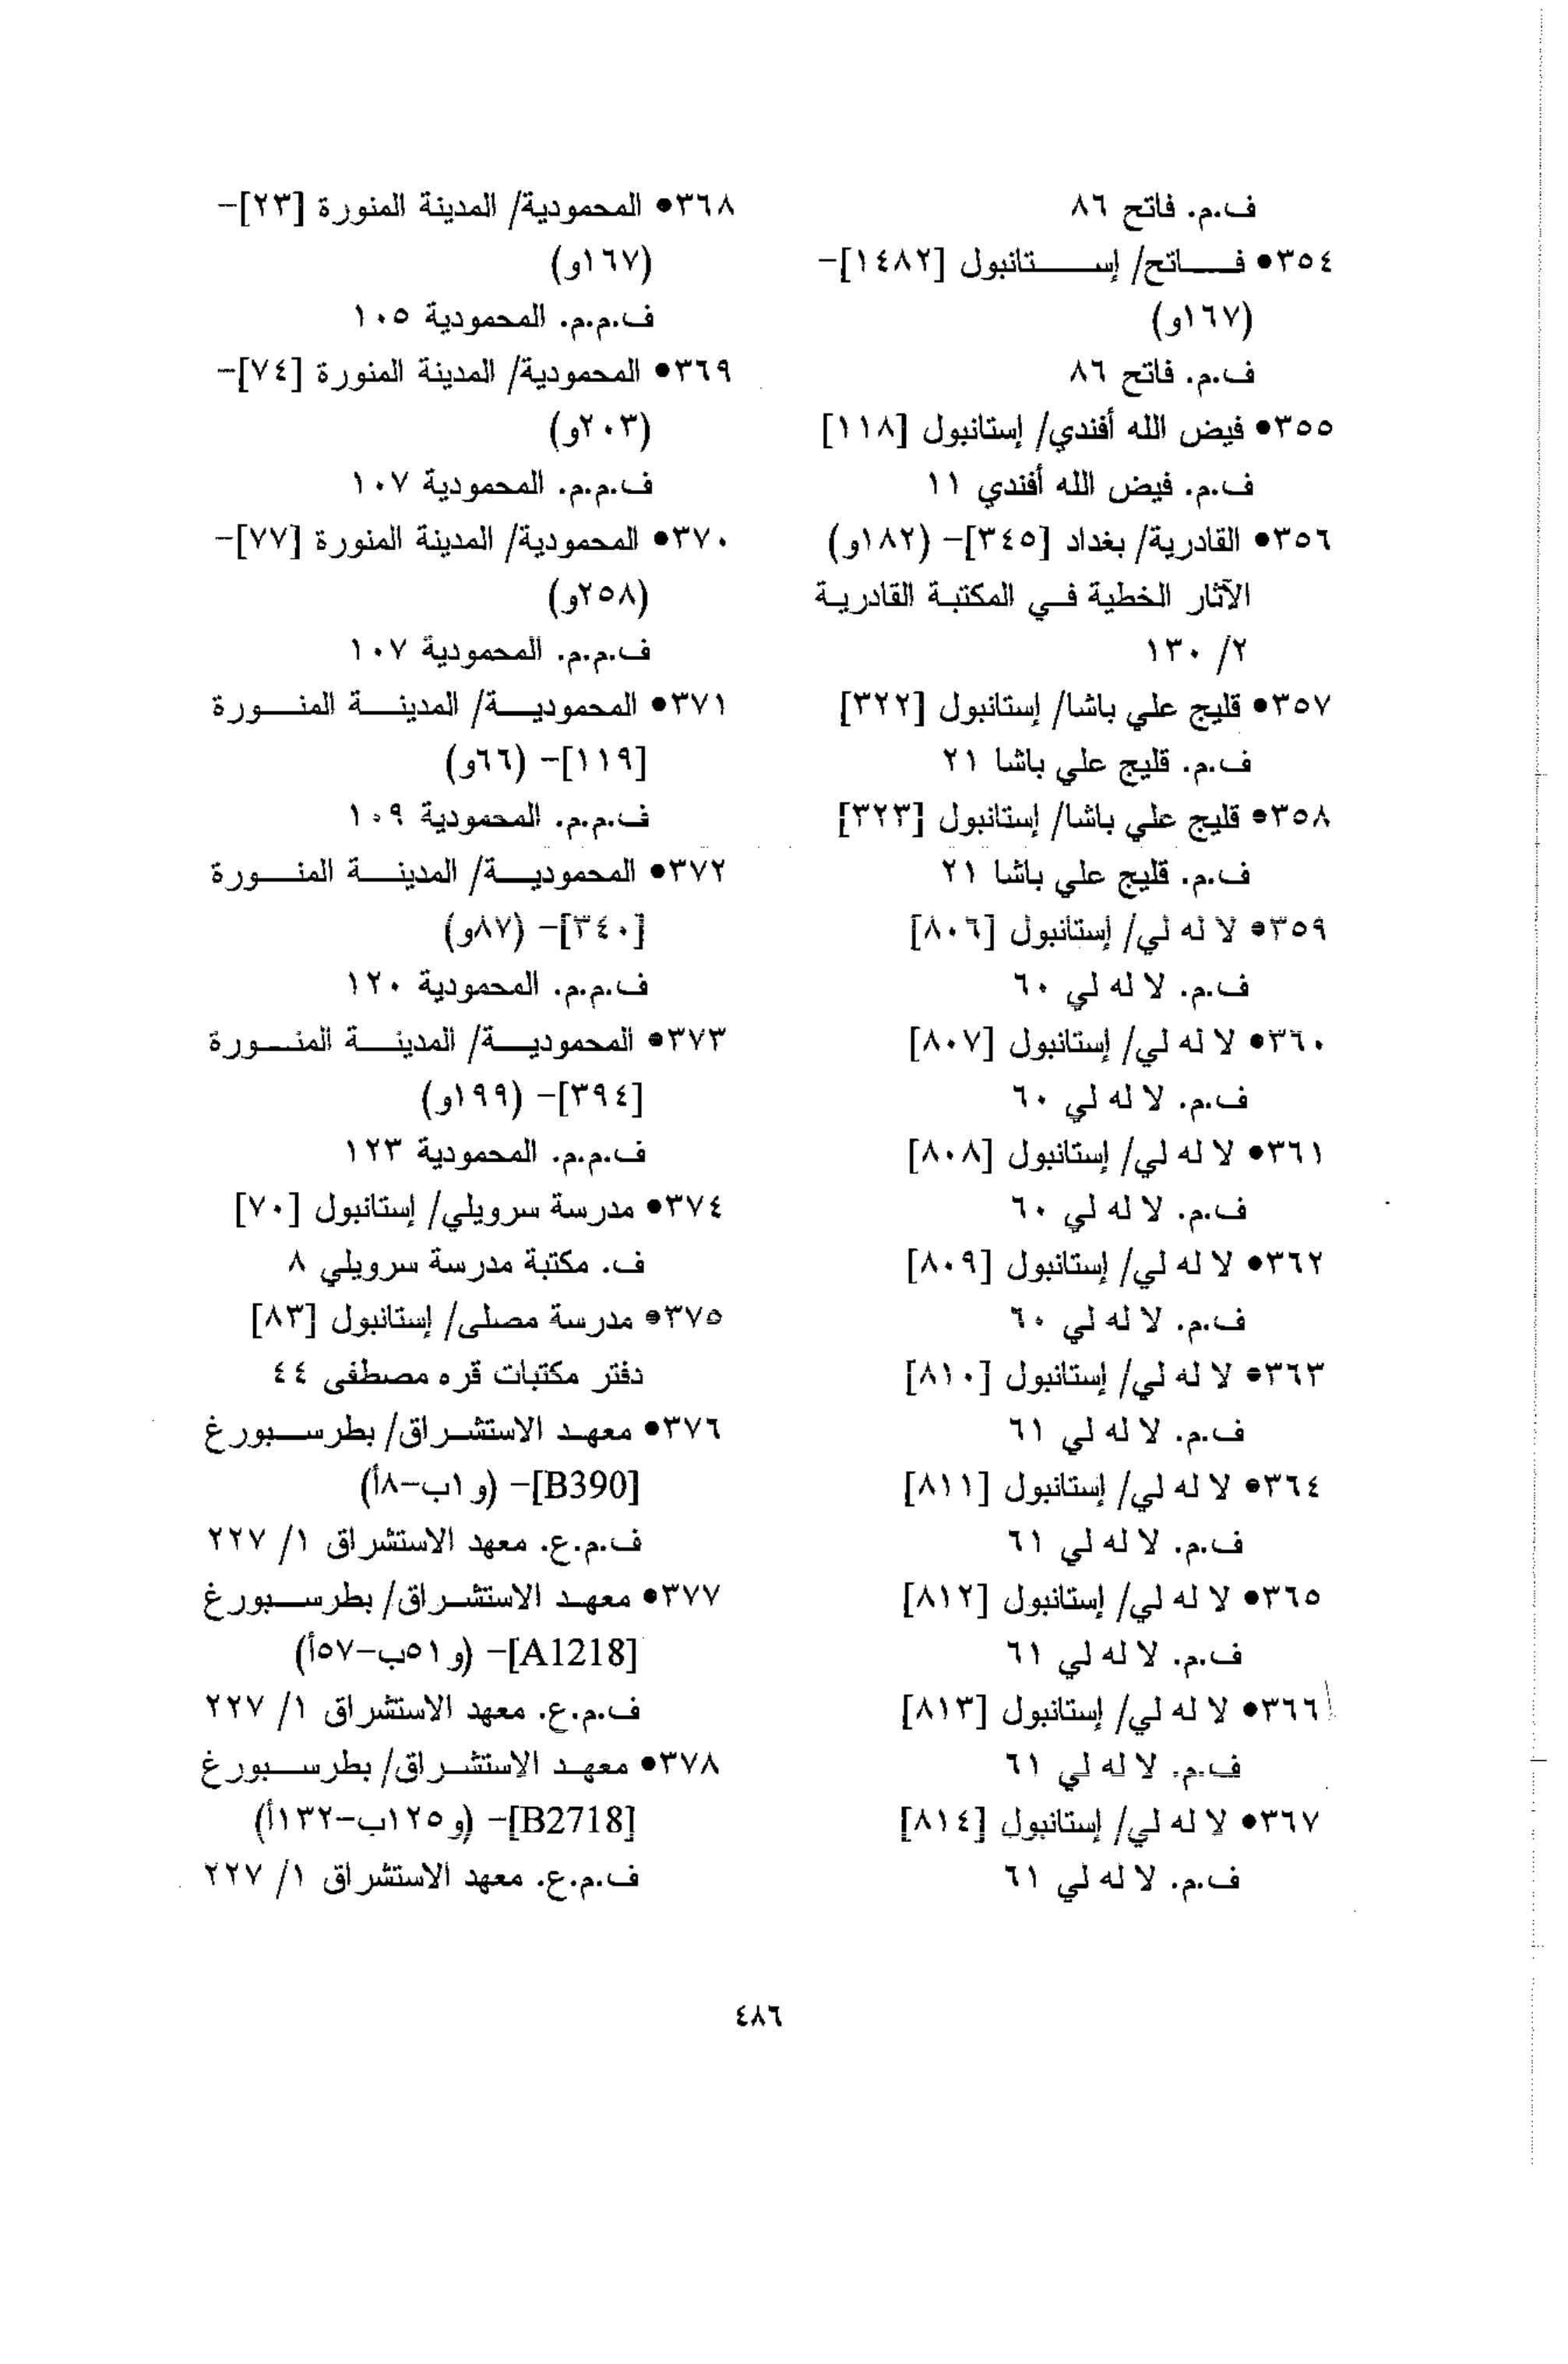 ف.م. فاتح ٨٦
٣٥٤• فاتح/ إستانبول [١٤٨٢]-
(١٦٧و)
ف.م. فاتح ٨٦
٣٥٥• فيض الله أفندي/ إستانبول [١١٨]
ف.م. فيض الله أفندي ١١
٣٥٦• القادرية/ بغداد [٣٤٥]- (١٨٢و)
الآثار الخطية في المكتبة القادرية
٢/ ١٣٠
٣٥٧• قليج علي باشا/ إستانبول [٣٢٢]
ف.م. قليج علي باشا ٢١
٣٥٨• قليج علي باشا/ إستانبول [٣٢٣]
ف.م. قليج علي باشا ٢١
٣٥٩• لا له لي/ إستانبول [٨٠٦]
ف.م. لا له لي ٦٠
٣٦٠• لا له لي/ إستانبول [٨٠٧]
ف.م. لا له لي ٦٠
٣٦١• لا له لي/ إستانبول [٨٠٨]
ف.م. لا له لي ٦٠
٣٦٢• لا له لي/ إستانبول [٨٠٩]
ف.م. لا له لي ٦٠
٣٦٣• لا له لي/ إستانبول [٨١٠]
ف.م. لا له لي ٦١
٣٦٤• لا له لي/ إستانبول [٨١١]
ف.م. لا له لي ٦١
٣٦٥• لا له لي/ إستانبول [٨١٢]
ف.م. لا له لي ٦١
٣٦٦• لا له لي/ إستانبول [٨١٣]
ف.م. لا له لي ٦١
٣٦٧• لا له لي/ إستانبول [٨١٤]
ف.م. لا له لي ٦١
٣٦٨• المحمودية/ المدينة المنورة [٢٣]-
(١٦٧و)
ف.م.م. المحمودية ١٠٥
٣٦٩• المحمودية/ المدينة المنورة [٧٤]-
(٢٠٣و)
ف.م.م. المحمودية ١٠٧
٣٧٠• المحمودية/ المدينة المنورة [٧٧]-
(٢٥٨و)
ف.م.م. المحمودية ١٠٧
٣٧١• المحمودية/ المدينة المنورة
[١١٩]- (٦٦و)
ف.م.م. المحمودية ١٠٩
٣٧٢• المحمودية/ المدينة المنورة
[٣٤٠]- (٨٧و)
ف.م.م. المحمودية ١٢٠
٣٧٣• المحمودية/ المدينة المنورة
[٣٩٤]- (١٩٩و)
ف.م.م. المحمودية ١٢٣
٣٧٤• مدرسة سرويلي/ إستانبول [٧٠]
ف. مكتبة مدرسة سرويلي ٨
٣٧٥• مدرسة مصلى/ إستانبول [٨٣]
دفتر مكتبات قره مصطفى ٤٤
٣٧٦• معهد الاستشراق/ بطرسبورغ
[B390]- (و١ب-٨أ)
ف.م.ع. معهد الاستشراق ١/ ٢٢٧
٣٧٧• معهد الاستشراق/ بطرسبورغ
[A1218]- (و٥١ب-٥٧أ)
ف.م.ع. معهد الاستشراق ١/ ٢٢٧
٣٧٨• معهد الاستشراق/ بطرسبورغ
[B2718]- (و١٢٥ب-١٣٢أ)
ف.م.ع. معهد الاستشراق ١/ ٢٢٧
٤٨٦